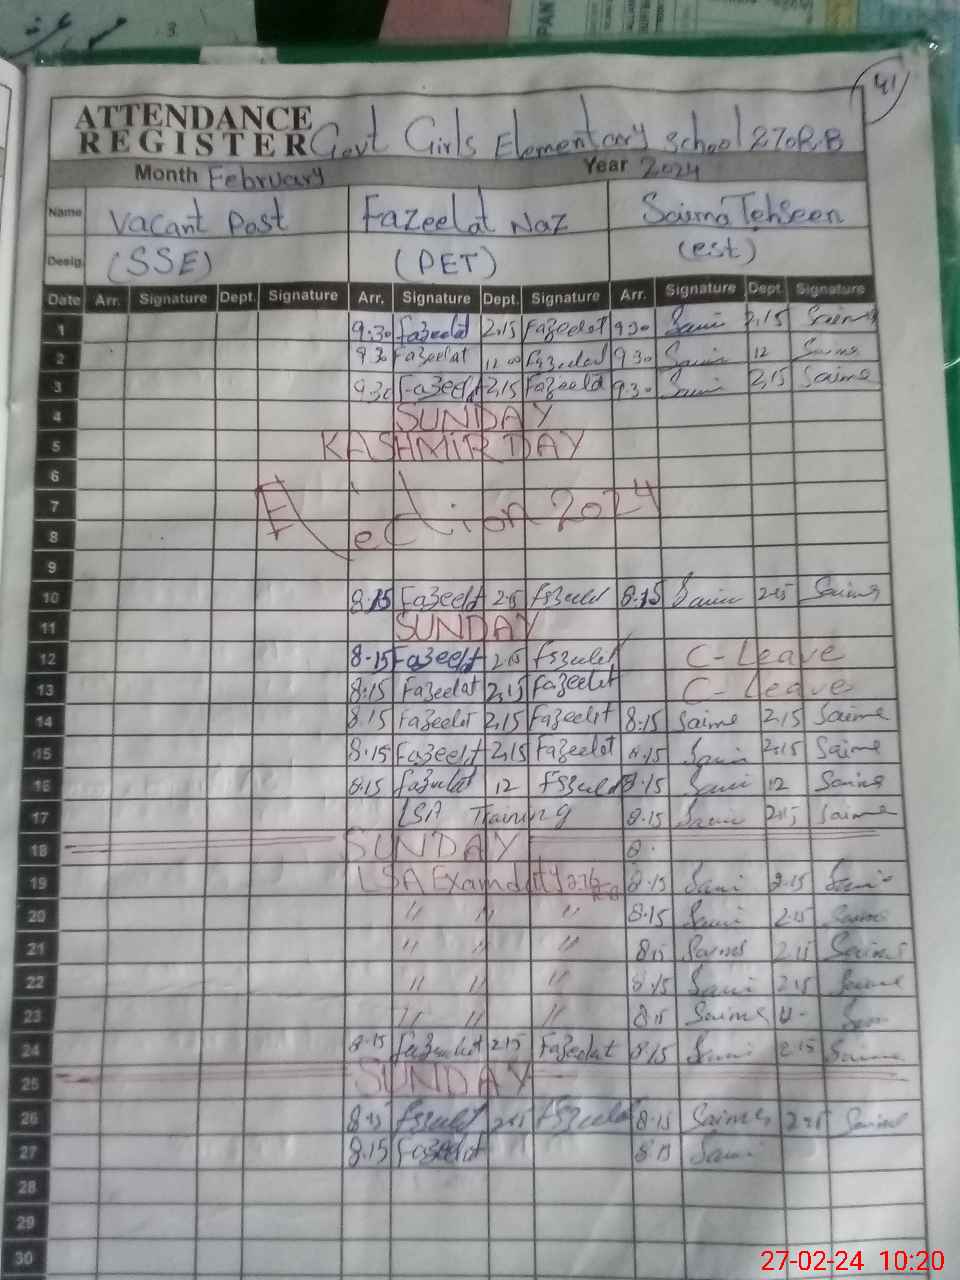 41
ATTENDANCE
REGISTER Govt Girls Elementary School 270RB
Month February Year 2024
Name Vacant Post Fazeelat Naz Saima Tehseen
Desig. (SSE) (PET) (est)
Date Arr. Signature Dept. Signature Arr. Signature Dept. Signature Arr. Signature Dept. Signature
1 9.30 Fazeelat 2.15 Fazeelat 9.30 2.15 Saima
2 9.30 Fazeelat 12.00 Fazeelat 9.30 12 Saima
3 9.30 Fazeelat 2.15 Fazeelat 9.30 2.15 Saima
4 SUNDAY
5 KASHMIR DAY
6
7 Election 2024
8
9
10 8.15 Fazeelat 2.15 Fazeelat 8.15 2.15 Saima
11 SUNDAY
12 8.15 Fazeelat 2.15 Fazeelat C-Leave
13 8.15 Fazeelat 2.15 Fazeelat C-Leave
14 8.15 Fazeelat 2.15 Fazeelat 8.15 Saima 2.15 Saima
15 8.15 Fazeelat 2.15 Fazeelat 8.15 2.15 Saima
16 8.15 Fazeelat 12 Fazeelat 8.15 12 Saima
17 LSA Training 8.15 2.15 Saima
18 SUNDAY 8.
19 LSA Exam duty 8.15 2.15
20 " " " 8.15 2.15 Saima
21 " " " 8.15 Saima 2.15 Saima
22 " " " 8.15 2.15 Saima
23 " " " 8.15 Saima
24 8.15 Fazeelat 2.15 Fazeelat 8.15 2.15 Saima
25 SUNDAY
26 8.15 Fazeelat 2.15 Fazeelat 8.15 Saima 2.15 Saima
27 8.15 Fazeelat 8.15
28
29
30
27-02-24 10:20